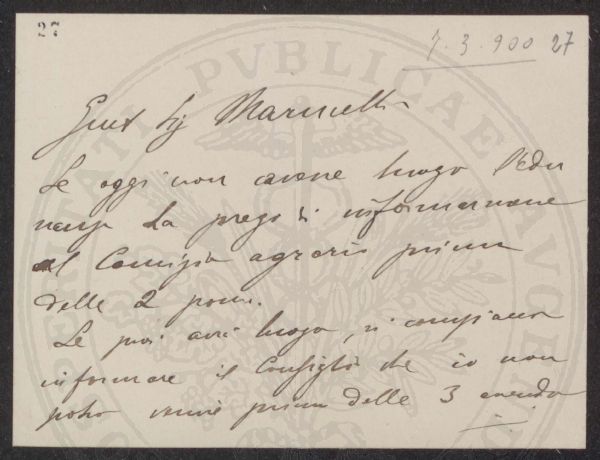 7.3.900 27
Gent Sig Marinelli
Se oggi non avesse luogo l'Adu
nanza La prego di informarmene
al Comizio agrario prima
delle 2 pom.
Se poi avrà luogo, si compiaccia
informare il Consiglio che io non
potrò venire prima delle 3 avendo